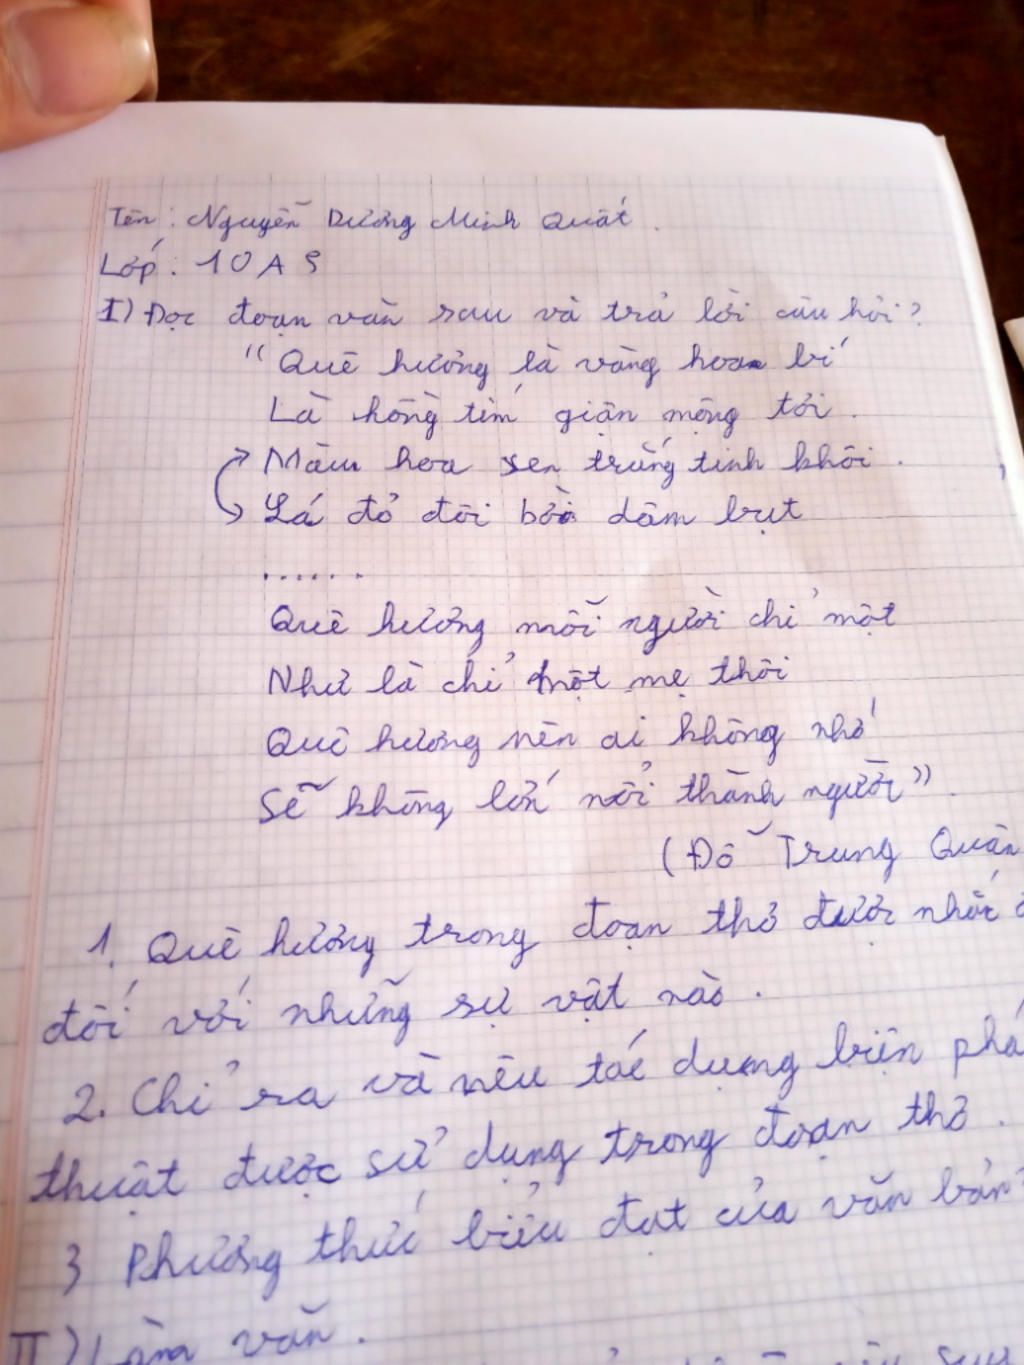 Tên: Nguyễn Dương Minh Quất.
Lớp: 10A9
I) Đọc đoạn văn sau và trả lời câu hỏi?
"Quê hương là vàng hoa bí
Là hồng tím giậu mồng tơi.
Màu hoa sen trắng tinh khôi.
Lá đỏ đôi bờ dâm bụt
......
Quê hương mỗi người chỉ một
Như là chỉ một mẹ thôi
Quê hương nên ai không nhớ
Sẽ không lớn nổi thành người".
(Đỗ Trung Quân
1. Quê hương trong đoạn thơ được nhắc
đối với những sự vật nào.
2. Chỉ ra và nêu tác dụng biện phá
thuật được sử dụng trong đoạn thơ.
3 Phương thức biểu đạt của văn bản?
II) Làm văn.